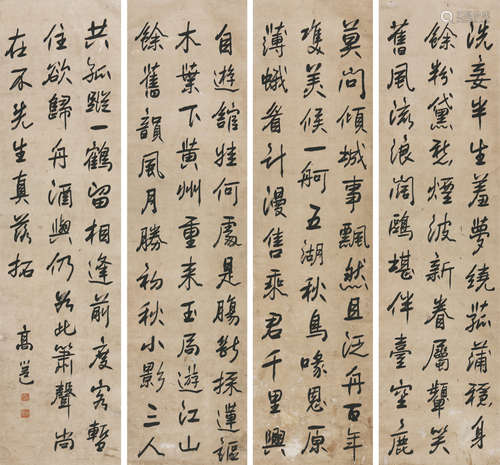 洗妾半生羞夢繞菰蒲穩身
餘粉黛愁煙波新眷屬顰笑
舊風流浪闊鷗堪伴臺空鹿
莫問傾城事飄然且泛舟百年
雙美候一舸五湖秋鳥喙恩原
薄蛾眉計漫售乘君千里興
自遊館娃何處是腸斷採蓮謳
木葉下黃州重來玉局遊江山
餘舊韻風月勝初秋小影三人
共孤蹤一鶴留相逢前度客暫
住欲歸舟酒興仍如此簫聲尚
在不先生真落拓
高邕